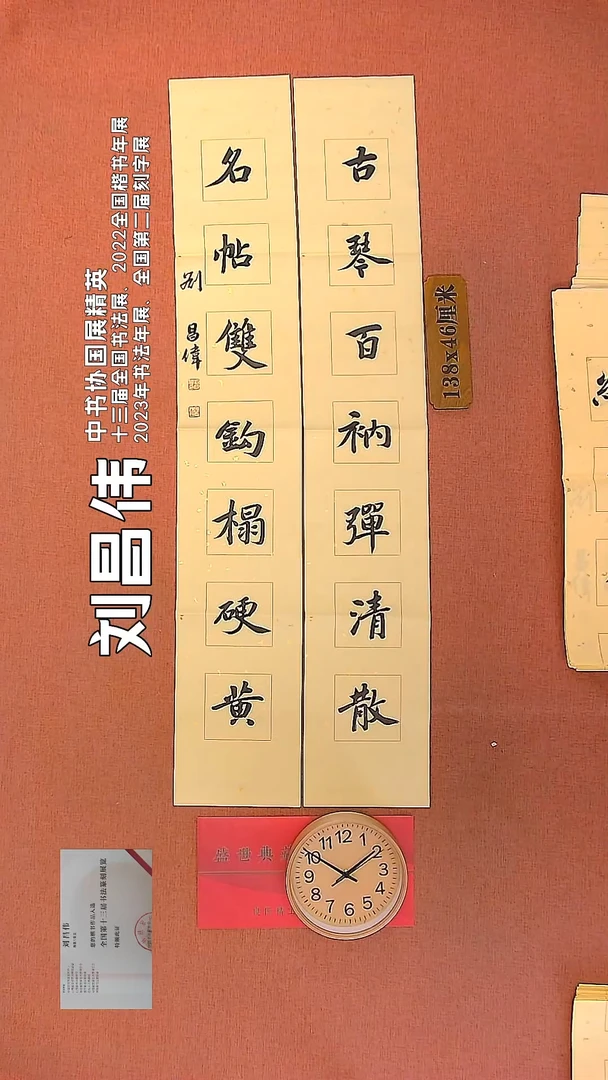 古琴百衲彈清散
名帖雙鈎榻硬黄
劉昌偉
138x46厘米
刘昌伟
中书协国展精英
十三届全国书法展、2022全国楷书年展
2023年书法年展、全国第二届刻字展
11 12 1
10 2
9 3
8 4
7 6 5
刘昌伟
您的楷书作品入选
全国第十三届书法篆刻展览
特颁此证